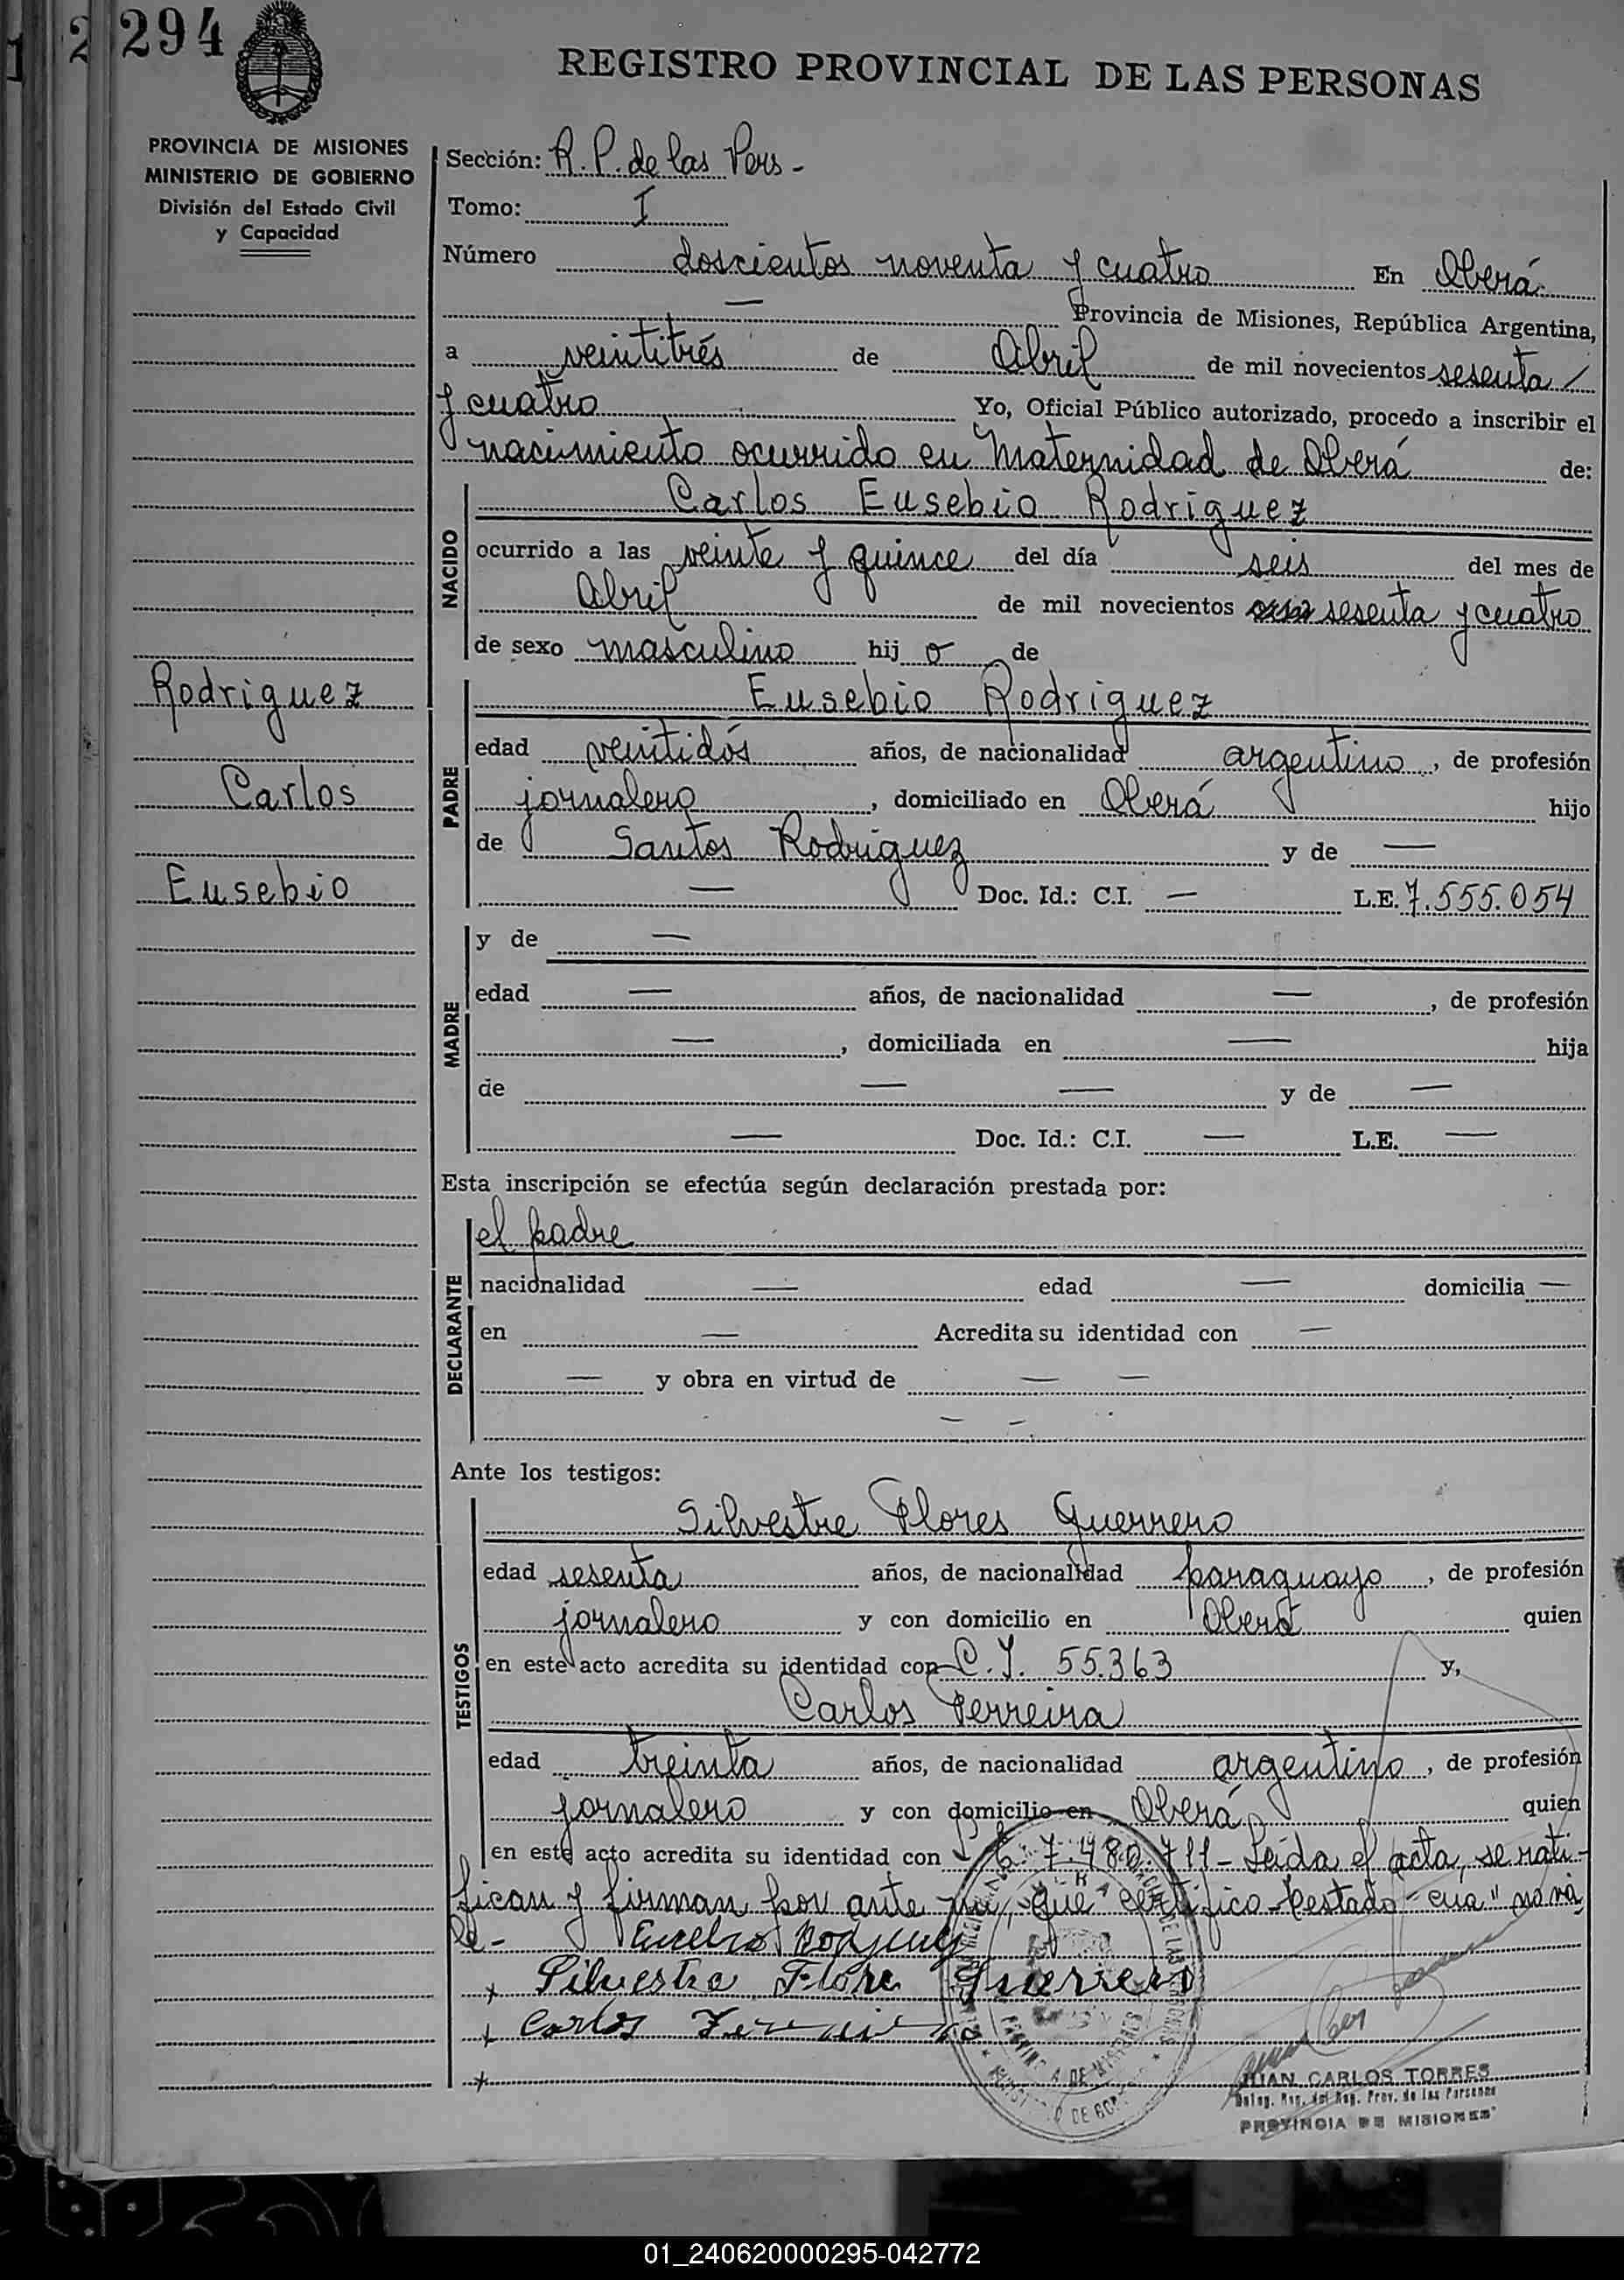 294
REGISTRO PROVINCIAL DE LAS PERSONAS
PROVINCIA DE MISIONES
MINISTERIO DE GOBIERNO
División del Estado Civil
y Capacidad
Sección: R. P. de las Pers -
Tomo: I
Número doscientos noventa y cuatro En Oberá
— Provincia de Misiones, República Argentina,
a veintitrés de Abril de mil novecientos sesenta /
y cuatro Yo, Oficial Público autorizado, procedo a inscribir el
nacimiento ocurrido en Maternidad de Oberá de:
NACIDO
Carlos Eusebio Rodriguez
ocurrido a las veinte y quince del día seis del mes de
Abril de mil novecientos sesenta y cuatro
de sexo masculino hij o de
Rodriguez
Carlos
Eusebio
PADRE
Eusebio Rodriguez
edad veintidós años, de nacionalidad argentino, de profesión
jornalero, domiciliado en Oberá hijo
de Santos Rodriguez y de —
— Doc. Id.: C.I. — L.E. 7.555.054
MADRE
y de —
edad — años, de nacionalidad —, de profesión
—, domiciliada en — hija
de — — y de —
— Doc. Id.: C.I. — L.E. —
Esta inscripción se efectúa según declaración prestada por:
DECLARANTE
el padre
nacionalidad — edad — domicilia —
en — Acredita su identidad con —
— y obra en virtud de — —
— —
Ante los testigos:
TESTIGOS
Silvestre Flores Guerrero
edad sesenta años, de nacionalidad paraguayo, de profesión
jornalero y con domicilio en Oberá quien
en este acto acredita su identidad con C.I. 55.363 y,
Carlos Ferreira
edad treinta años, de nacionalidad argentino, de profesión
jornalero y con domicilio en Oberá quien
en este acto acredita su identidad con L.E. 7.480.711 - Leida el acta, se rati-
fican y firman por ante mi, que certifico - Testado - "cua" no va
le -
Eusebio Rodriguez
x Silvestre Flore Guerrero
x Carlos Ferreira
x
JUAN CARLOS TORRES
Deleg. Reg. del Reg. Prov. de las Personas
PROVINCIA DE MISIONES
01_240620000295-042772